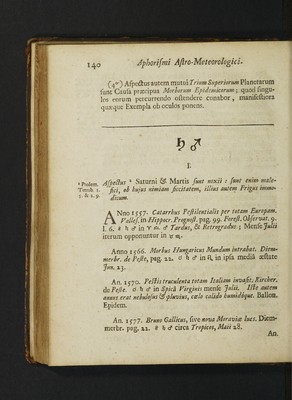 140 Aphorismi Astro-Meteorologici.
(4°) Aspectus autem mutui Trium Superiorum Planetarum
sunt Causa præcipua Morborum Epidemicorum; quod singu-
los eorum percurrendo ostendere conabor, manifestiora
quæque Exempla ob oculos ponens.
♄ ♂
I.
Aspectus ᵃ Saturni & Martis sunt noxii: sunt enim male-
ᵃ Ptolem.
Tetrab. 1.
5. & 2. 9.
fici, ob hujus nimiam siccitatem, illius autem Frigus immo-
dicum.
ANno 1557. Catarrhus Pestilentialis per totam Europam.
Valles. in Hippocr. Prognost. pag. 99. Forest. Observat. 9.
l. 6. ☍ ♄ ♂ in ♈ ♎. ♂ Tardus, & Retrogradus; Mense Julii
iterum opponuntur in
Anno 1566. Morbus Hungaricus Mundum intrabat. Diem-
merbr. de Peste, pag. 22. ☌ ♄ ♂ in ♌, in ipsa media æstate
Jun. 23.
An. 1570. Pestis truculenta totam Italiam invasit. Kircher.
de Peste. ☌ ♄ ♂ in Spicâ Virginis mense Julii. Iste autem
annus erat nebulosus & pluvius, cælo calido humidóque. Ballon.
Epidem.
An. 1577. Bruno Gallicus, sive nova Moraviæ lues. Diem-
merbr. pag. 22. ☍ ♄ ♂ circa Tropicos, Maii 28.
An.